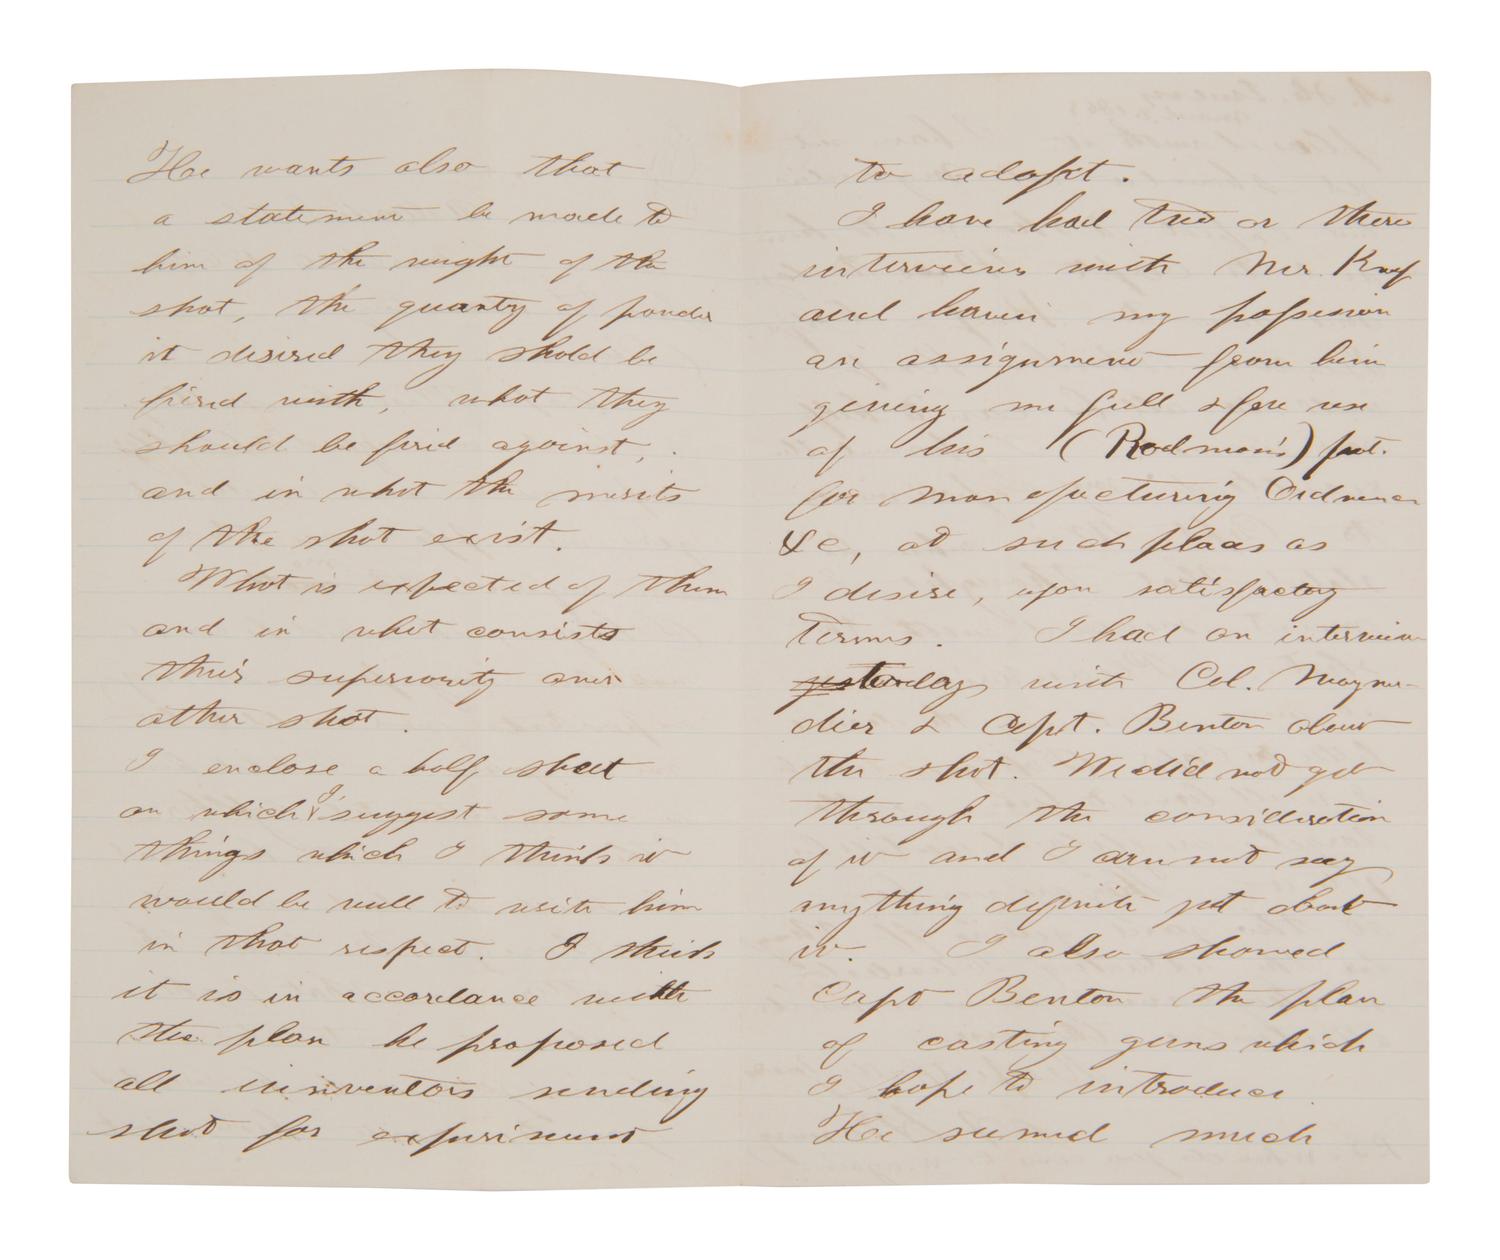 He wants also that
a statement be made to
him of the weight of the
shot, the quanty of powder
it desired they shold be
fired with, what they
should be fired against,
and in what the merits
of the shot exist.
What is expected of them
and in what consists
their superiority over
other shot.
I enclose a half sheet
on which I suggest some
things which I think it
would be well to write him
in that respect. I think
it is in accordance with
the plan he proposed
all inventors sending
shot for experiment
to adopt.
I have had two or three
interviews with Mr. Knap
and have in my possession
an assignment from him
giving me full & free use
of his (Rodman's) pat.
for manufacturing Ordnance
&c, at such places as
I desire, upon satisfactory
terms. I had an interview
yesterday with Col. Mayna-
dier & Capt. Benton about
the shot. We did not get
through the consideration
of it and I can not say
anything definite yet about
it. I also showed
Capt Benton the plan
of casting guns which
I hope to introduce.
He seemed much